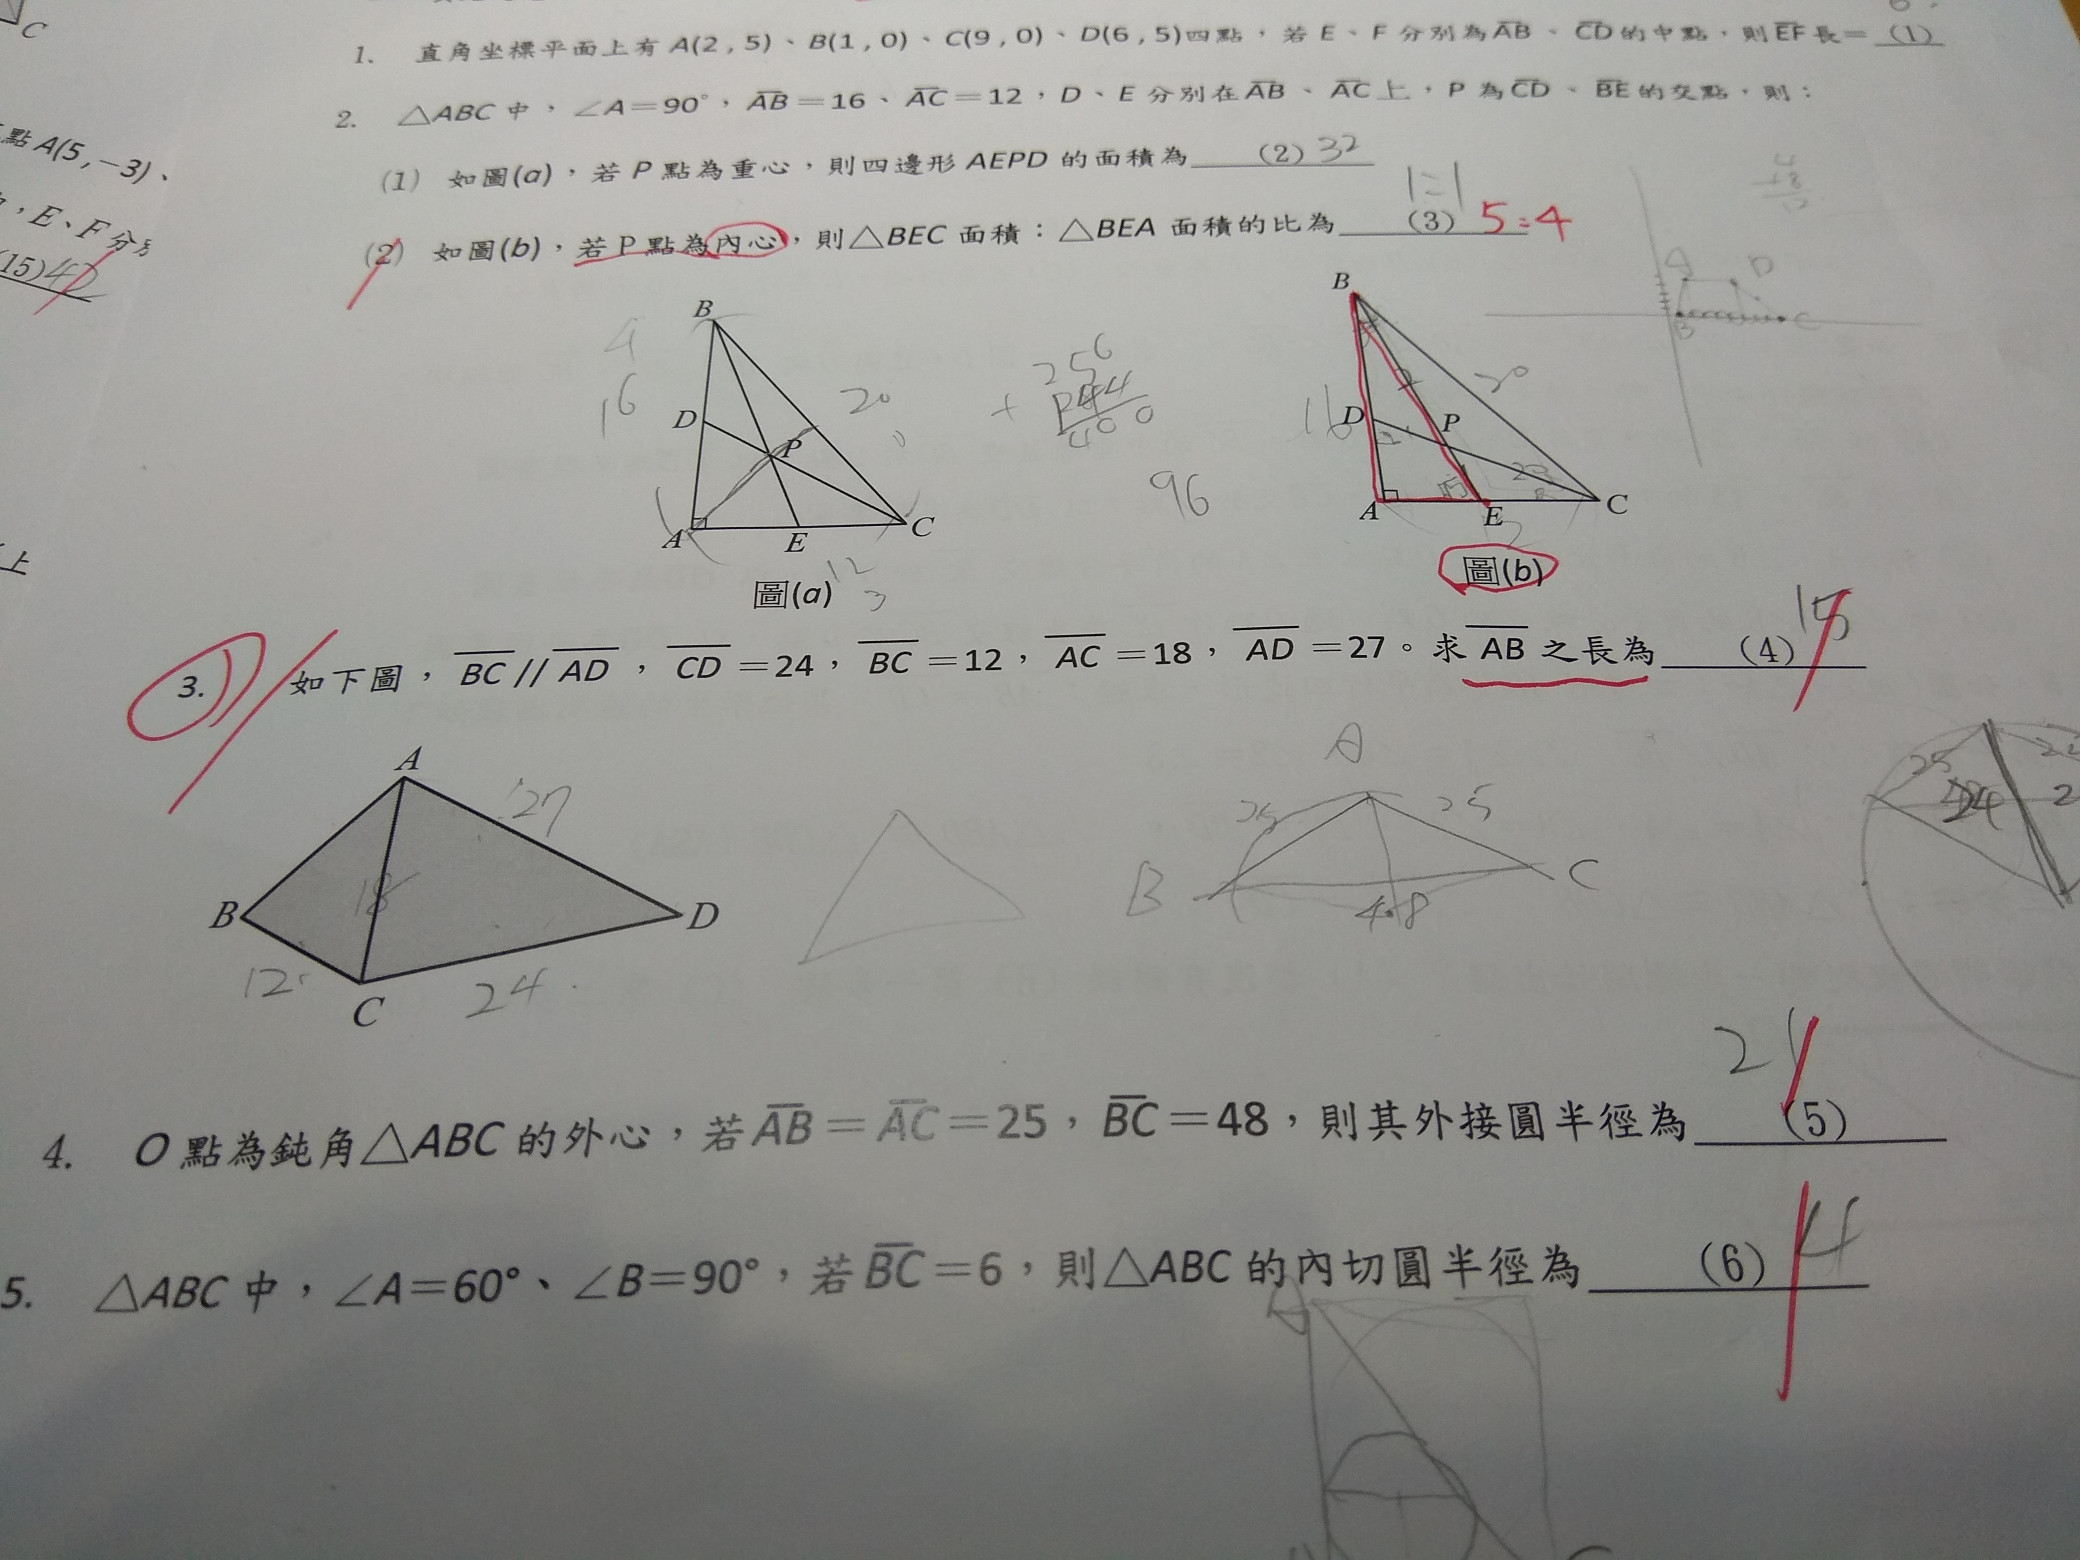 C
點A(5,−3)、
,E、F分
(15)40
上
1. 直角坐標平面上有A(2,5)、B(1,0)、C(9,0)、D(6,5)四點,若E、F分別為AB、CD的中點,則EF長=(1)
2. △ABC中,∠A=90°,AB=16、AC=12,D、E分別在AB、AC上,P為CD、BE的交點,則:
(1) 如圖(a),若P點為重心,則四邊形AEPD的面積為 (2) 32
1=1
(2) 如圖(b),若P點為內心,則△BEC面積:△BEA面積的比為 (3) 5:4
4
+8
12
A D
B C
B
4
16
D
20
P
A E C
12
3
圖(a)
256
+ 144
400
96
B
2
20
16
D P
A E C
12
圖(b)
3. 如下圖,BC//AD,CD=24,BC=12,AC=18,AD=27。求AB之長為 (4) 15
A
27
B
18
D
12
24
C
A
25 25
B C
4.8
25
24
2
4. O點為鈍角△ABC的外心,若AB=AC=25,BC=48,則其外接圓半徑為 (5) 21
5. △ABC中,∠A=60°、∠B=90°,若BC=6,則△ABC的內切圓半徑為 (6) 4
A
C